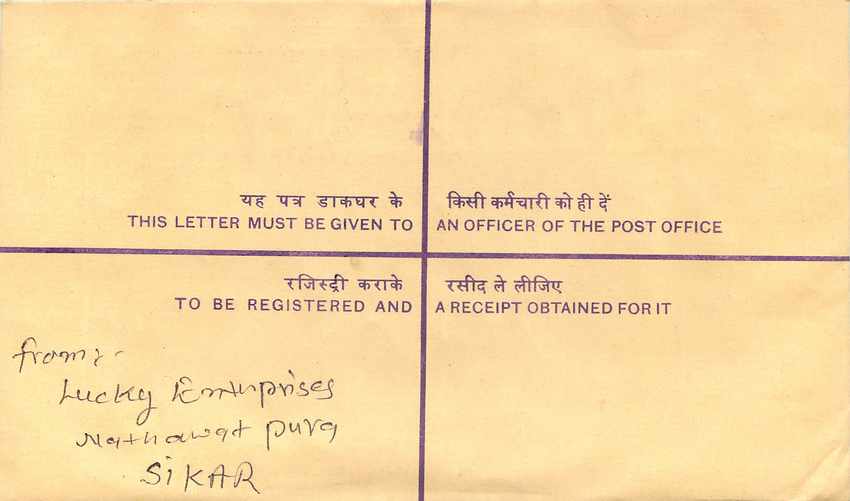 यह पत्र डाकघर के किसी कर्मचारी को ही दें
THIS LETTER MUST BE GIVEN TO AN OFFICER OF THE POST OFFICE
रजिस्ट्री कराके रसीद ले लीजिए
TO BE REGISTERED AND A RECEIPT OBTAINED FOR IT
from:-
Lucky Enterprises
Nathawat pura
SiKAR